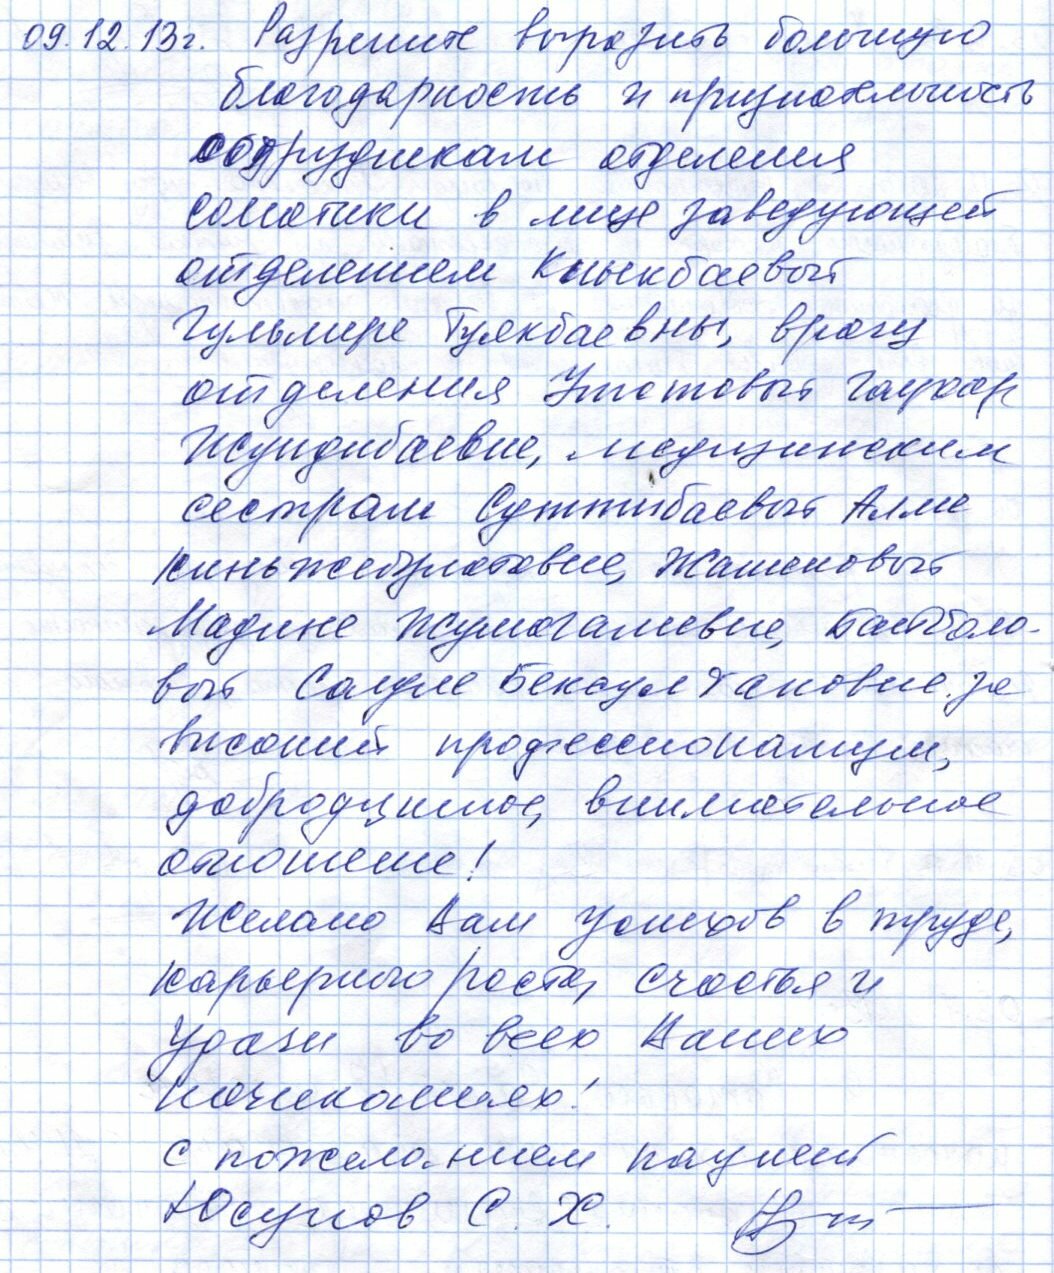 09.12.13г. Разрешите выразить большую
благодарность и признательность
сотрудникам отделения
соматики в лице заведующей
отделением Кныкбаевой
Гульмире Туякбаевны, врачу
отделения Утотовой Гаухар
Жундибаевне, медицинским
сестрам Суттибаевой Алме
Киньжебулатовне, Жашеновой
Мадине Жумагалиевне, Байболо-
вой Салуле Бексултановне. за
высокий профессионализм,
добродушное, внимательное
отношение!
Желаю Вам успехов в труде,
карьерного роста, счастья и
Удачи во всех Ваших
начинаниях!
С пожеланием пациент
Юсупов С. Х.